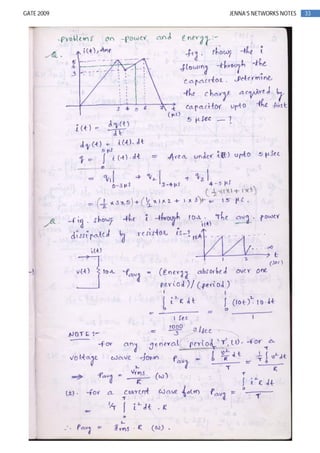 GATE 2009 JENNA'S NETWORKS NOTES 33
-problems on -power and Energy:-
Q. i(t), Amp fig. shows the i
flowing -through -the
capacitor. Determine
the charge acquired by
capacitor upto the first
5 μsec — ?
(μs)
i(t) = dq(t)/dt
dq(t) = i(t).dt
q = ∫ i(t).dt = Area under i(t) upto 5μsec
= q| + q| + q|
0-3μs 3-4μs 4-5 μs
Q. -fig. shows the i through 10Ω. The avg. power
dissipated by resistor is-?
i(t)
10A
t
(sec)
v(t) 10Ω Pavg = (Energy absorbed over one
period)/(period)
∫ i² R dt = ∫ (10t)² 10 dt
1 sec
= 1000/3 J/sec
NOTE:-
-for any general period 'T', (1). -for a
voltage wave -form Pavg =
⇒ Pavg = Vrms²/R (w)
(2). -for a current wave form Pavg = ∫ i² R dt / T
= 1/T ∫ i² dt . R
∴ Pavg = Irms² . R (w).